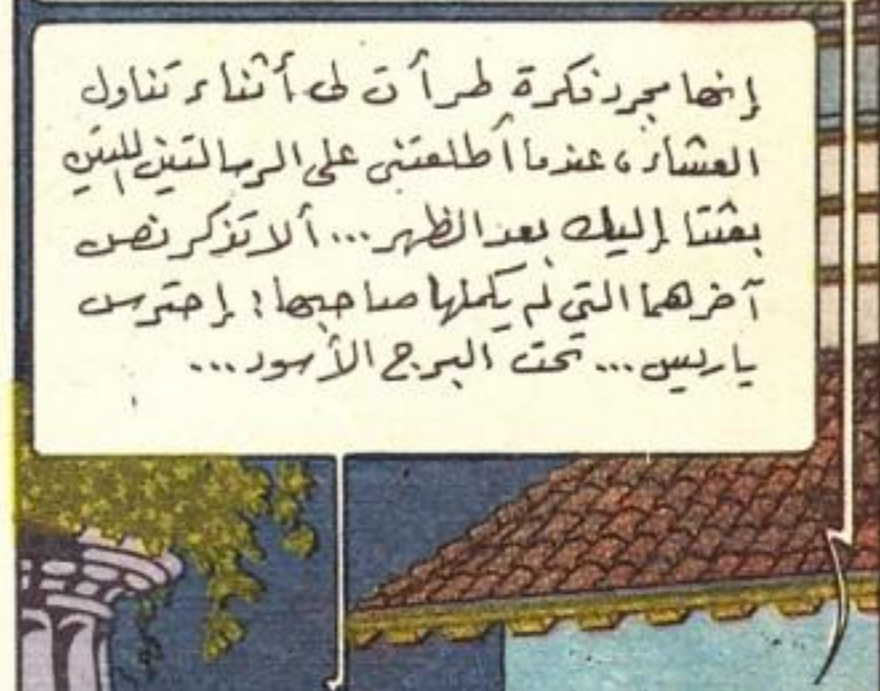 إنها مجرد فكرة طرأت لى أثناء تناول
العشاء، عندما أطلعتنى على الرسالتين اللتين
بعثتا إليك بعد الظهر... ألا تذكر نص
آخرهما التي لم يكملها صاحبها؟ إحترس
ياريس... تحت البرج الأسود...